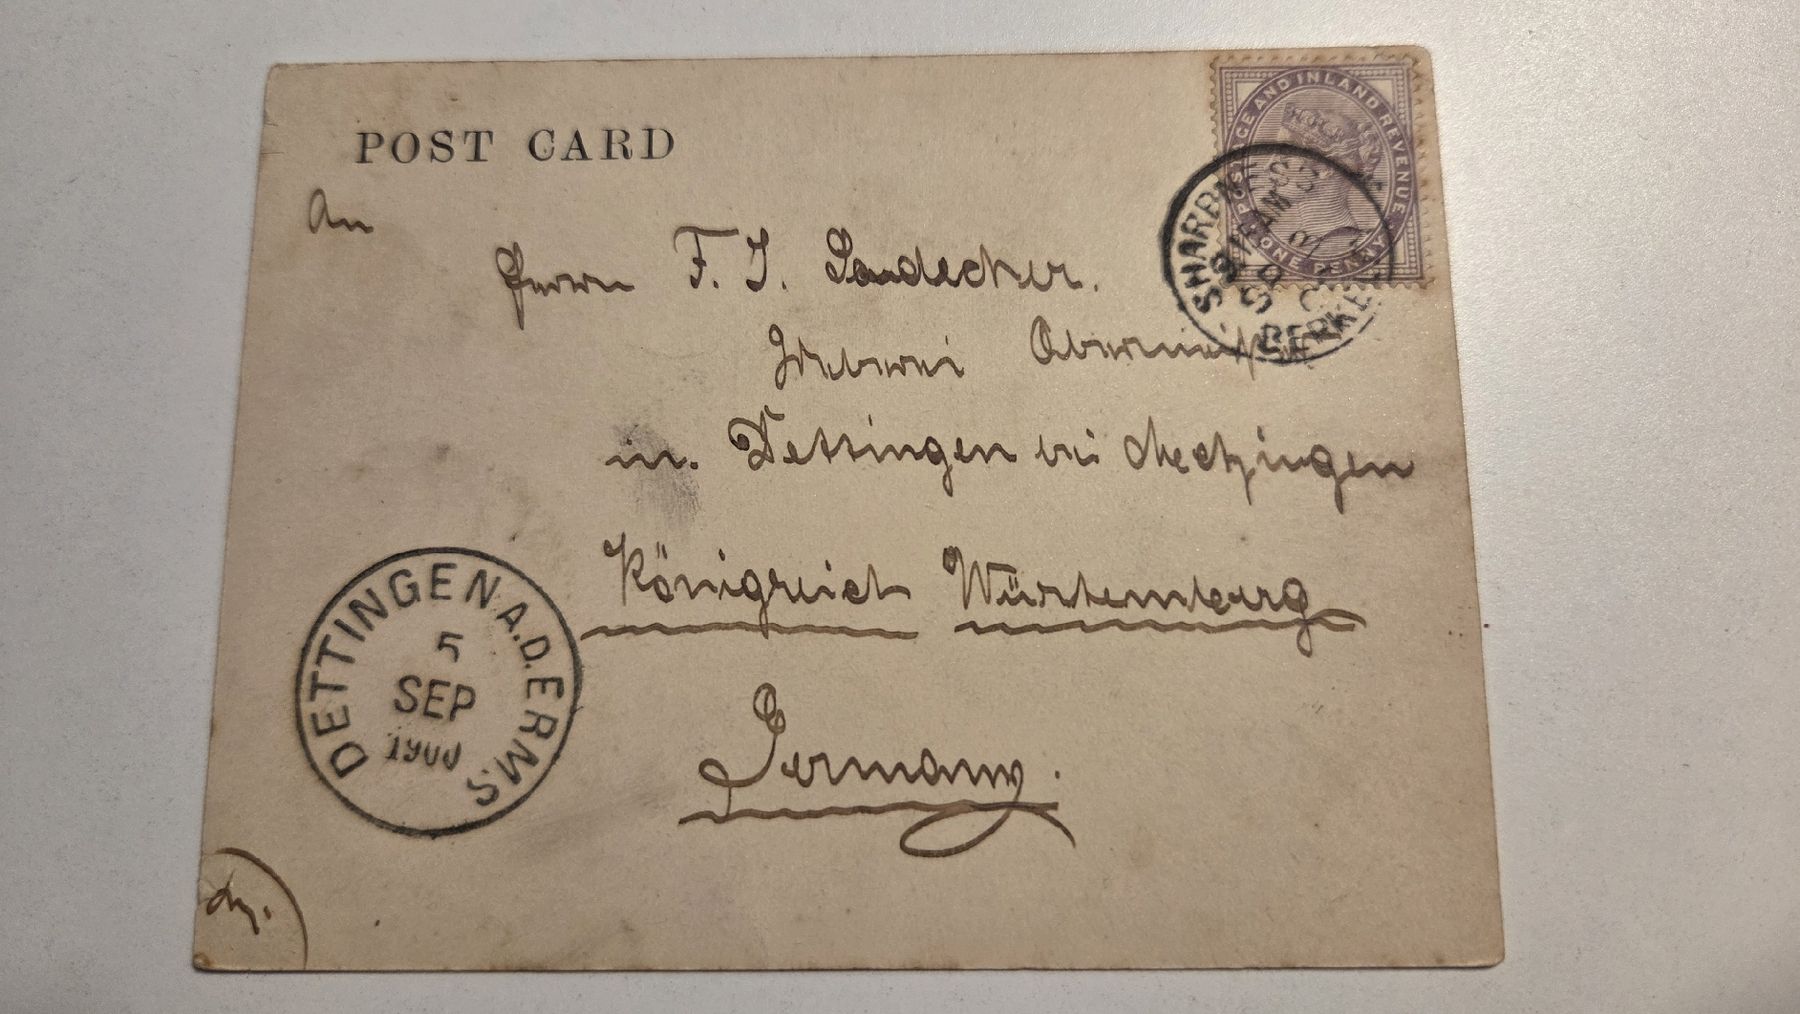 POST CARD
POSTAGE AND INLAND REVENUE
ONE PENNY
An
Herrn F. J.
Weberei Obermeister
in. Dettingen bei Metzingen
Königreich Würtemberg
Germany.
DETTINGEN A.D. ERMS.
5
SEP
1900